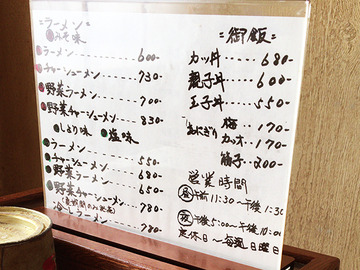 =ラーメン=
みそ味
ラーメン 600-
チャーシューメン 730-
野菜ラーメン 700-
野菜チャーシューメン 830-
しょうゆ味 塩味
ラーメン 550-
チャーシューメン 680-
野菜ラーメン 650-
野菜チャーシューメン 780-
冷しラーメン 780-
=御飯=
カツ丼 680-
親子丼 600-
玉子丼 550-
(おにぎり) 梅 170-
カツオ 170-
筋子 200-
営業時間
昼 午前11:30~午後1:30
夜 午後5:00~午後10:00
定休日~毎週日曜日